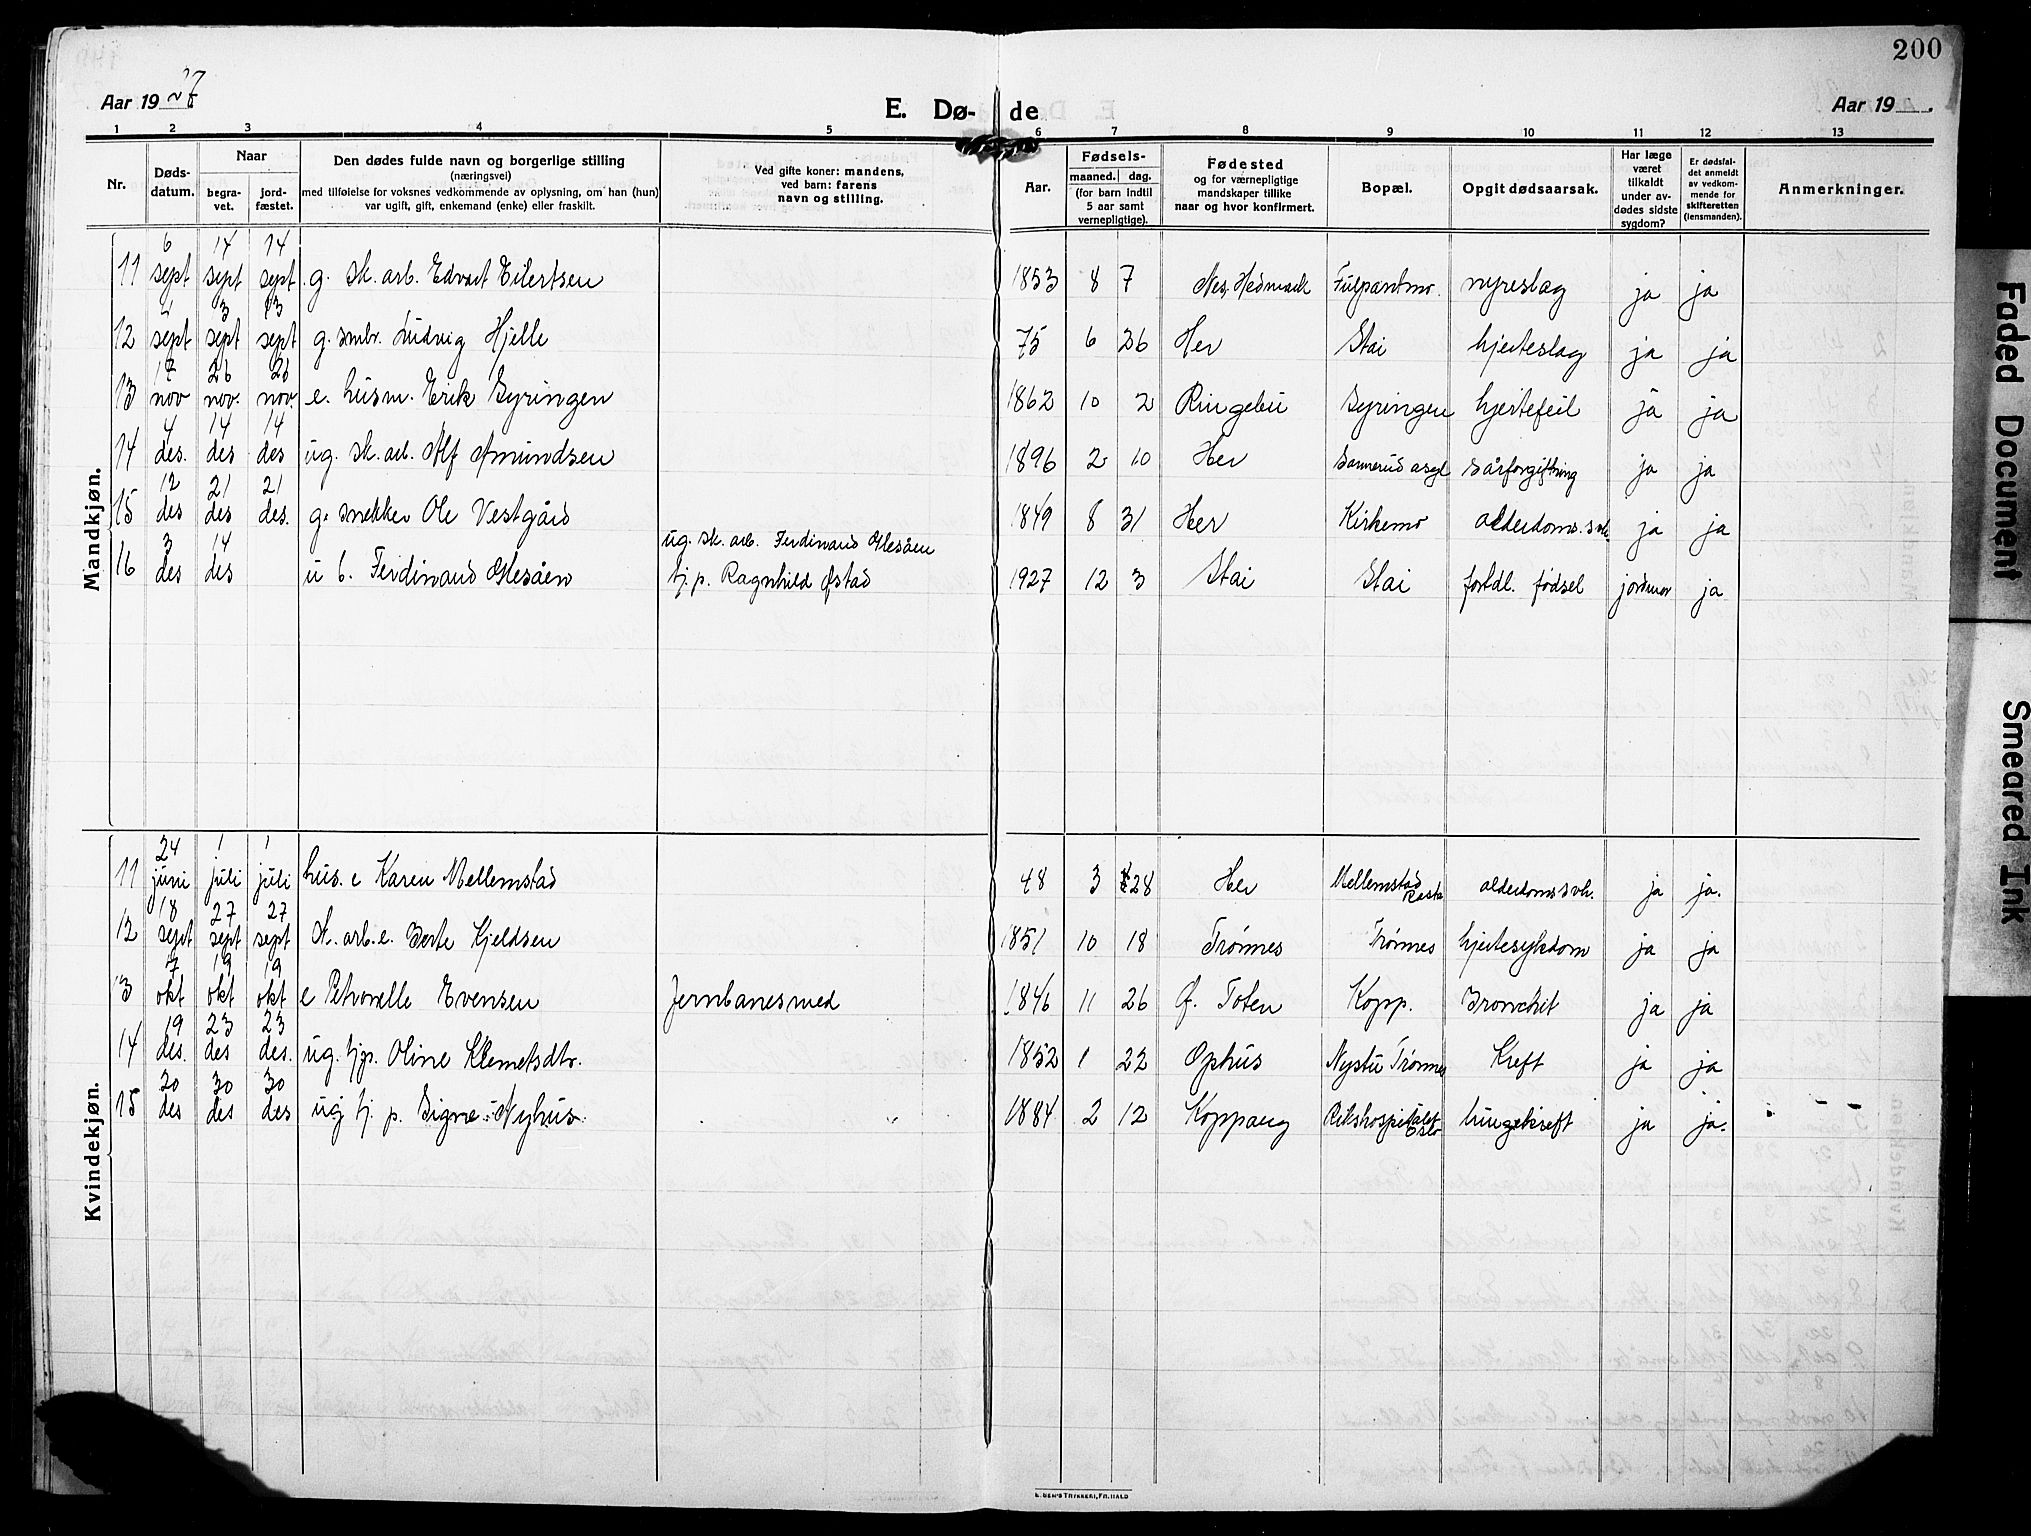 200
Aar 1927
E. Dø- de
Aar 19
1 2 3 4 5 6 7 8 9 10 11 12 13
Nr.
Døds-
datum.
Naar
begra-
vet.
jord-
fæstet.
Den dødes fulde navn og borgerlige stilling
(næringsvei)
med tilføielse for voksnes vedkommende av oplysning, om han (hun)
var ugift, gift, enkemand (enke) eller fraskilt.
Ved gifte koner: mandens,
ved barn: farens
navn og stilling.
Aar.
Fødsels-
maaned. dag.
(for barn indtil
5 aar samt
vernepligtige).
Fødested
og for værnepligtige
mandskaper tillike
naar og hvor konfirmert.
Bopæl.
Opgit dødsaarsak.
Har læge
været
tilkaldt
under av-
dødes sidste
sygdom?
Er dødsfal-
det anmeldt
av vedkom-
mende for
skifteretten
(lensmanden).
Anmerkninger.
Mandkjøn.
11 6 sept 14 sept 14 sept g. sk. arb. Edvart Eilertsen 1853 8 7 Nes, Hedmark nyreslag ja ja
12 sept 3 sept 13 sept g. smbr. Ludvig Hjelle 75 6 26 Her Stai hjerteslag ja ja
13 17 nov 26 nov. 26 nov. e. husm. Erik Gyringen 1862 10 2 Ringebu Gyringen hjertefeil ja ja
14 4 des. 14 des 14 des ug. sk. arb. Alf Amundsen 1896 2 10 Her Sannerud asyl sårforgiftning ja ja
15 12 des 21 des 21 des. g. snekker Ole Vestgård 1849 8 31 Her Kirkemo alderdoms.svk. ja ja
16 3 des 14 des u b. Ferdinand Messåen ug. sk. arb. Ferdinand Messåen
tj. p. Ragnhild Østad 1927 12 3 Stai Stai fortdl. fødsel jordmor ja
Kvindekjøn.
11 24 juni 1 juli 1 juli hus. e Karen Mellemstad 48 3 28 Her Mellemstad alderdomssvk. ja ja.
12 18 sept 27 sept 27 sept sk. arb. e. Berte Kjeldsen 1851 10 18 Trønnes Trønnes hjertesykdom ja ja
13 7 okt 19 okt 19 okt e Petronelle Evensen Jernbanesmed 1846 11 26 Ø. Toten Kopp. Bronchit ja ja
14 19 des. 23 des 23 des. ug. tjp. Oline Klemetsdtr. 1852 1 22 Ophus Nystu Trønnes Kreft ja ja
15 20 des 30 des 30 des ug tj. p. Signe Nyhus 1884 2 12 Koppang Rikshospitalet Oslo lungekreft ja ja.
E. SEM'S TRYKKERI, FR.HALD
Faded Document
Smeared Ink